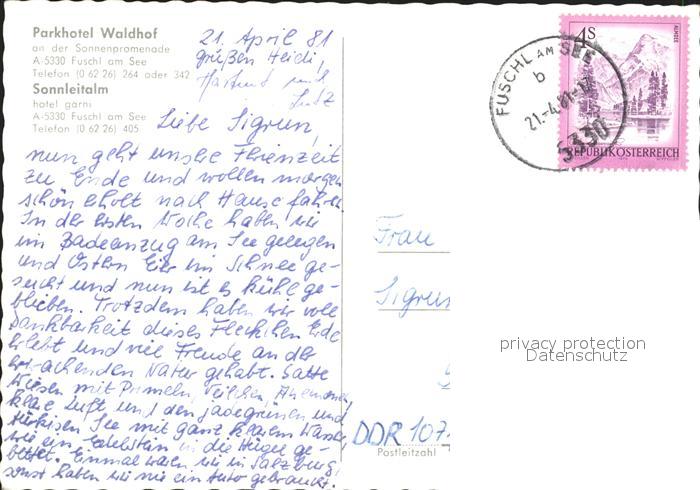 Parkhotel Waldhof
an der Sonnenpromenade
A-5330 Fuschl am See
Telefon (0 62 26) 264 oder 342
Sonnleitalm
hotel garni
A-5330 Fuschl am See
Telefon (0 62 26) 405
21. April 81
grüßen Heidi,
und
Lutz
Liebe Sigrun,
nun geht unsere Ferienzeit
zu Ende und wollen morgen
schön erholt nach Hause fahren.
In der ersten Woche haben wir
im Badeanzug am See gelegen
und Ostern Eier im Schnee ge-
sucht und nun ist es kühl ge-
blieben. Trotzdem haben wir voll
Dankbarkeit dieses Fleckchen Erde
erlebt und viel Freude an der
erwachenden Natur gehabt. Satte
Wiesen mit Primeln, Veilchen, Anemonen,
klare Luft, und den jadegrünen und
türkisen See mit ganz klarem Wasser
wie ein Edelstein in die Hügel ge-
bettet. Einmal waren wir in Salzburg
sonst haben wir nie ein Auto gebraucht.
4S
ALMSEE
REPUBLIK ÖSTERREICH
FUSCHL AM SEE
b
21.-4.81-17
5330
Frau
Sigrun
DDR 107
Postleitzahl
privacy protection
Datenschutz